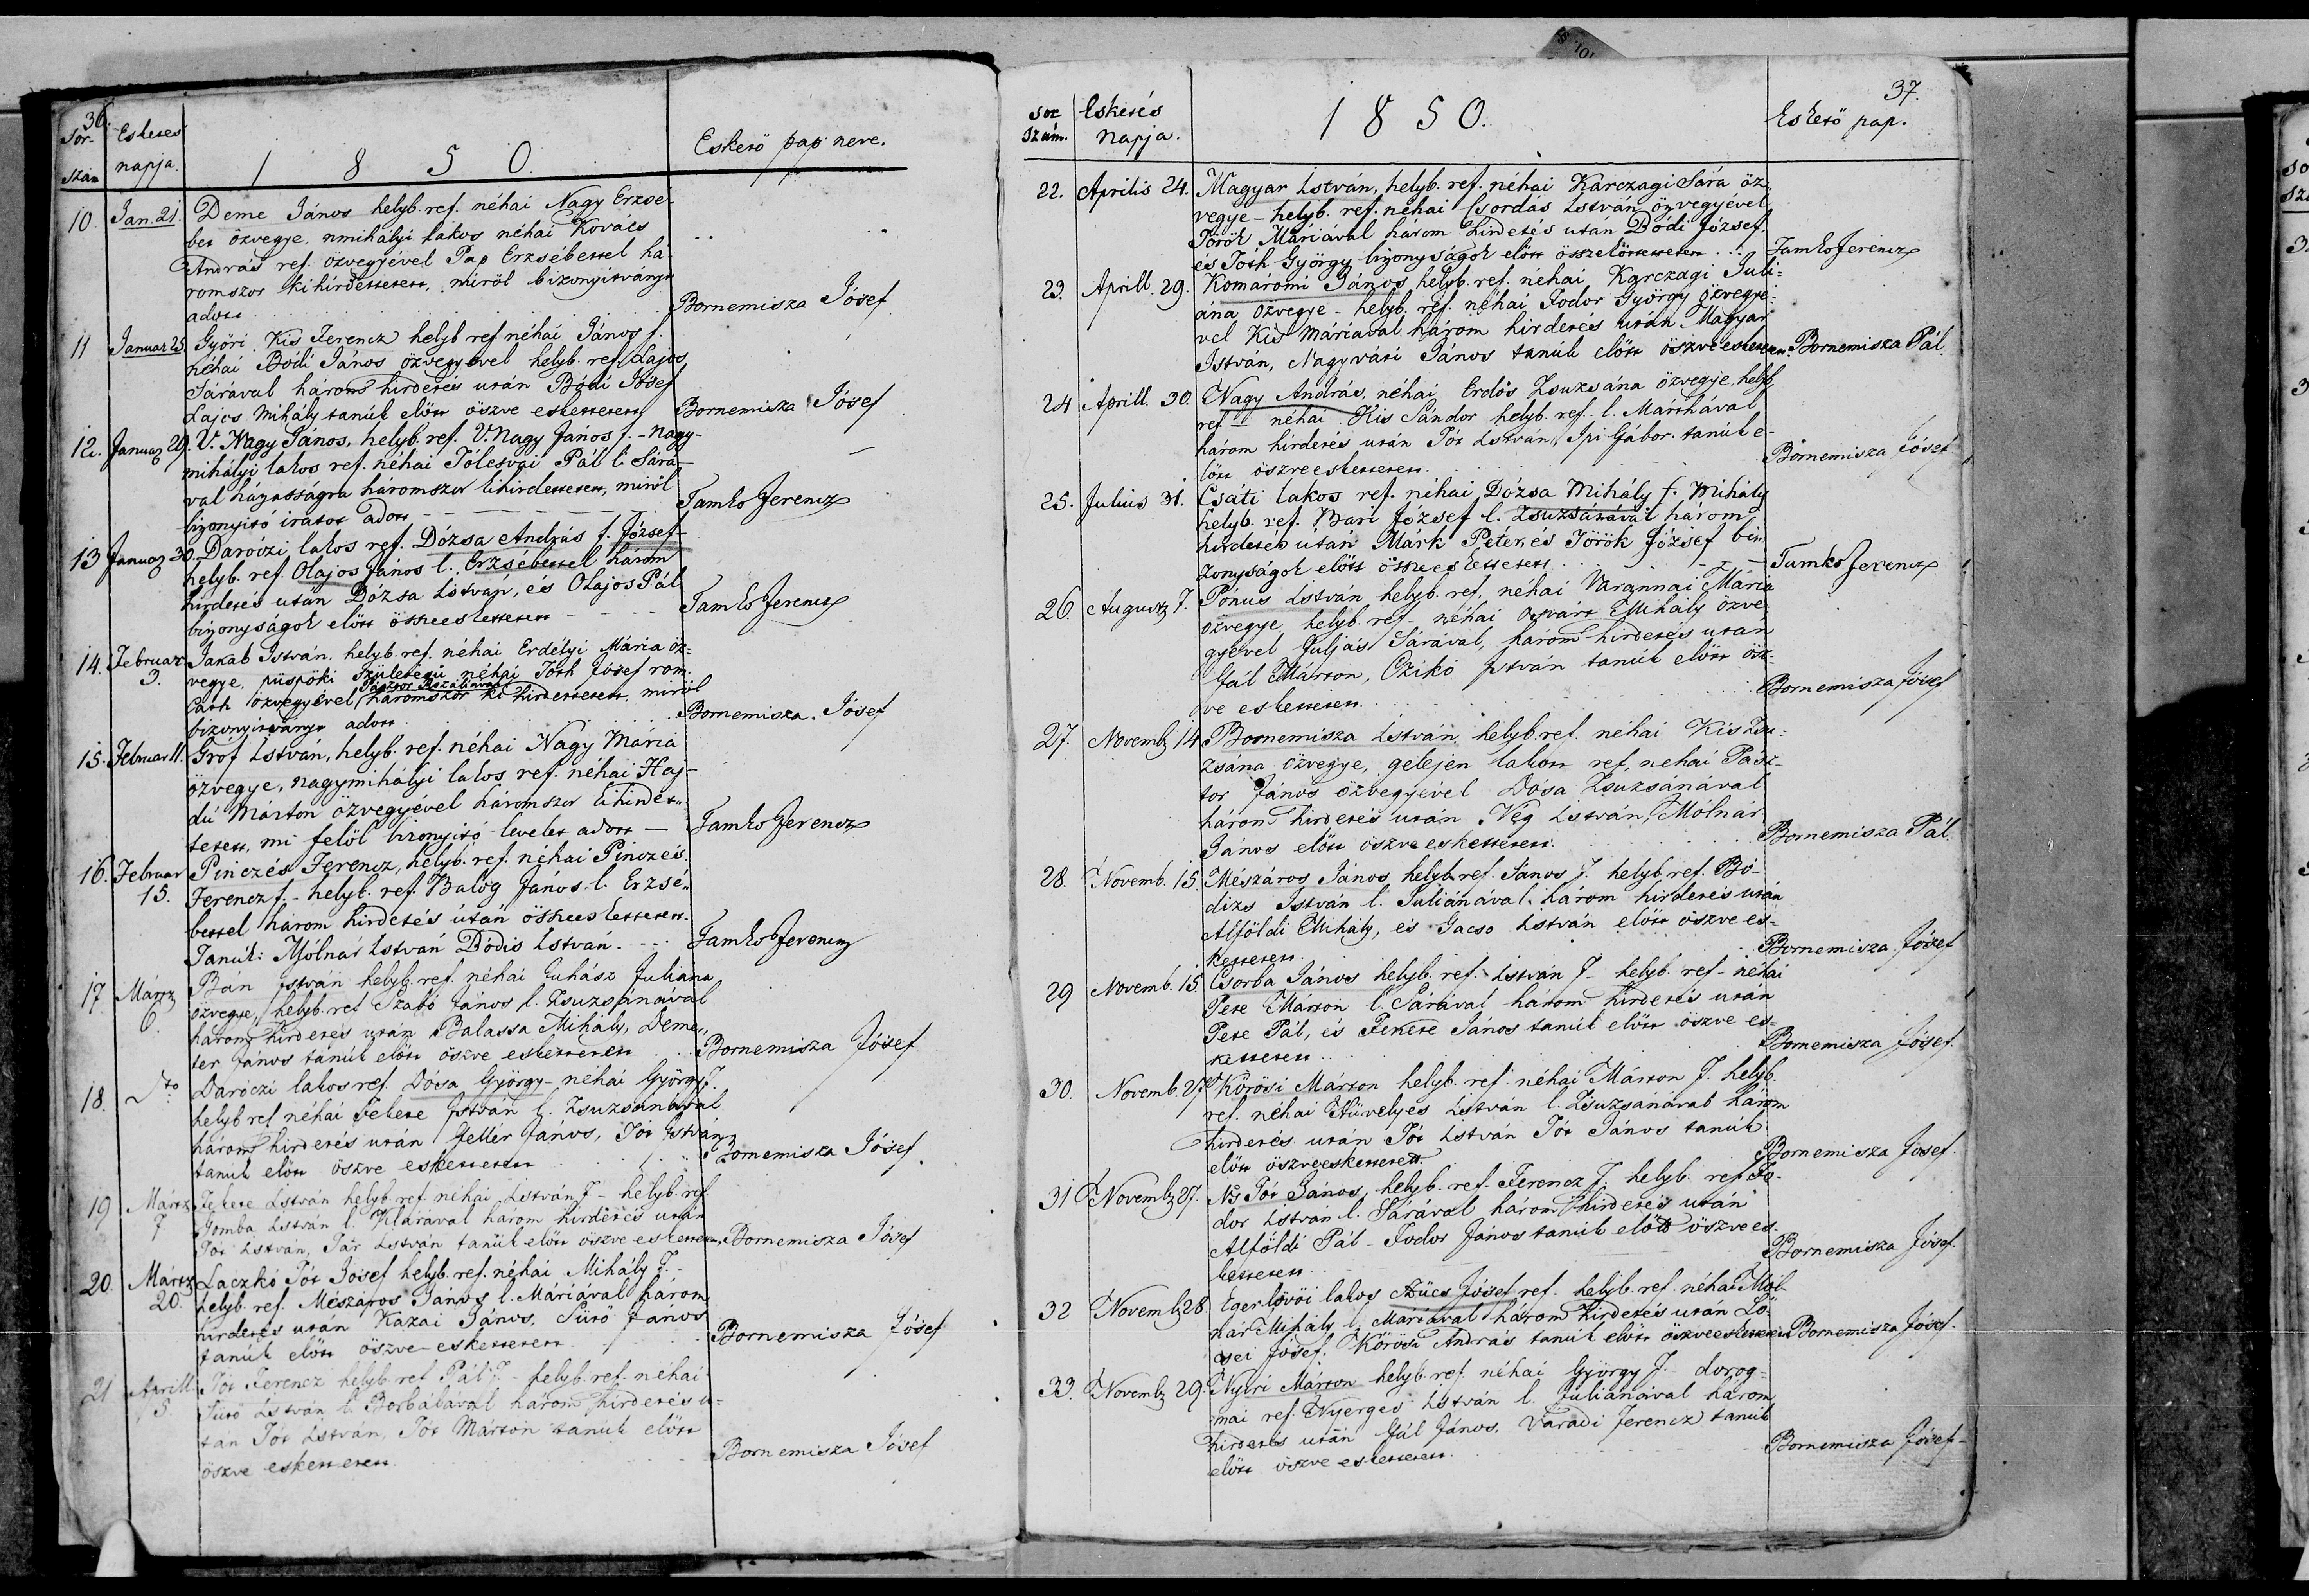 36.
Sor-
szán
Esketes
napja.
1 8 5 0.
Eskető pap neve.
10 Jan. 21. Deme János helyb. ref. néhai Nagy Erzsé-
bet özvegye, nmihályi lakos néhai Kovács
András ref. özvegyével Pap Erzsébettel há
romszor kihirdettetett, miröl bizonyitványt
adott Bornemisza Jósef
11 Januar 25. Györi Kis Ferencz helyb ref néhai János f.
néhai Bódi János özvegyével helyb. ref. Lajos
Sárával három hirdetés után Bódi Jósef
Lajos Mihály tanúk elött öszve eskettetett Bornemisza Jósef
12. Januar 29. V. Nagy János, helyb. ref. V. Nagy János f. - Nagy-
mihályi lakos ref. néhai Tólcsvai Pál l. Sárá-
val házasságra háromszor kihirdettetett, miröl
bizonyitó iratot adott Tamko Ferencz
13 Januar 30. Daróczi lakos ref. Dózsa András f. József-
helyb. ref. Olajos János l. Erzsébettel három
hirdetés után Dózsa István, és Olajos Pál
bizonyságok elött összeeskettetett Tamko Ferencz
14. Februar
3. Jakab István, helyb. ref. néhai Erdélyi Mária öz-
vegye, püspöki születésü néhai Tóth Jósef rom.
cath özvegyével Pásztor Rozáliával háromszor ki hirdettetett, miröl
bizonyitványt adott Bornemisza Jósef
15. Februar 11. Gróf István, helyb. ref. néhai Nagy Mária
özvegye, nagymihályi lakos ref. néhai Haj-
dú Márton özvegyével háromszor kihirdet-
tetett, mi felöl bizonyitó levelet adott - Tamko Ferencz
16. Februar
15. Pinczés Ferencz, helyb. ref. néhai Pinczés
Ferencz f. - helyb. ref. Balog János l. Erzsé-
bettel három hirdetés után összeeskettetett.
Tanúk: Mólnár István Bódis István. Tamko Ferencz
17 Mártz
6. Bán István helyb. ref. néhai Juhász Juliana
özvegye, helyb. ref Szabó János l. Zsuzsánával
három hirdetés után Balassa Mihály, Deme-
ter János tanúk elött öszve eskettetett Bornemisza Jósef
18. Dto Daróczi lakos ref. Dósa György - néhai György f.
helyb ref néhai Fekete István l. Zsuzsánával
három hirdetés után Gellér János, Tót István
tanuk elött öszve eskettetett Bornemisza Jósef
19 Mártz
7 Fekete István helyb. ref. néhai István f - helyb. ref.
Gomba István l. Klárával három hirdetés után
Tót István, Tár István tanúk elött öszve eskettetett, Bornemisza Jósef
20. Mártz
20. Laczkó Tót Josef helyb. ref. néhai Mihály f. -
helyb. ref. Mészáros János l. Máriával három
hirdetés után Kazai János, Sütö János
tanúk elött öszve eskettetett Bornemisza Jósef
21 Aprill
5 Tót Ferencz helyb. ref Pál f. - helyb. ref. néhai
Sütö István l. Borbálával három hirdetés u-
tán Tót István, Tót Márton tanúk elött
öszve eskettetett Bornemisza Jósef
37.
sor
szám.
Esketés
napja.
1 8 5 0.
Eskető pap.
22. Aprilis 24. Magyar István, helyb. ref. néhai Karczagi Sára öz-
vegye - helyb. ref. néhai Csordás István özvegyével
Török Máriával három hirdetés után Bódi József,
és Tóth György bizonyságok elött összeköttetetett Tamko Ferencz
23. Aprill. 29. Komáromi János helyb. ref. néhai Karczagi Juli-
ána özvegye - helyb. ref. néhai Fodor György özvegyé-
vel Kis Máriával három hirdetés után Magyar
István, Nagyvári János tanúk elött öszveeskettetett. Bornemisza Pál.
24 Aprill. 30. Nagy András, néhai Erdös Zsuzsána özvegye, helyb
ref - néhai Kis Sándor helyb. ref. l. Márthával
három hirdetés után Tót István, Ipi Gábor tanúk e-
lött öszveeskettetett. Bornemisza Jósef
25. Julius 31. Csáti lakos ref. néhai Dózsa Mihály f. Mihály
helyb. ref. Bari József l. Zsuzsánával három
hirdetés után Márk Péter, és Török József bi-
zonyságok elött összeeskettetett Tamko Ferencz
26. August 7. Pónus István helyb. ref. néhai Varannai Mária
özvegye helyb. ref - néhai Mihály özve-
gyével Juljás Sárával, három hirdetés után
Gál Márton, Czikó István tanúk elött ösz-
ve eskettetett. Bornemisza Jósef
27. Novemb 14 Bornemisza István, helyb. ref. néhai Kis Zsu-
zsána özvegye, gelejen lakott ref. néhai Pász-
tor János özvegyével Dósa Zsuzsánával
három hirdetés után Vég István, Mólnár
János elött öszve eskettetett. Bornemisza Pál.
28. Novemb. 15. Mészáros János helyb. ref. János f. helyb ref. Bó-
dizs István l. Juliánával három hirdetés után
Alföldi Mihály, és Gacso István elött öszve es-
kettetett. Bornemisza Jósef
29 Novemb. 15. Csorba János helyb. ref. István f - helyb. ref - néhai
Pete Márton l. Sárával három hirdetés után
Pete Pál, és Fekete János tanúk elött öszve es-
kettetett Bornemisza Jósef.
30. Novemb. 27. Körösi Márton helyb. ref. néhai Márton f. helyb.
ref. néhai Hüvelyes István l. Zsuzsánával három
hirdetés után Tót István Tót János tanúk
elött öszveeskettetett. Bornemisza Josef.
31 Novemb 27. Ns Tót János, helyb. ref. Ferencz f. helyb. ref. Fo-
dor István l. Sárával három hirdetés után
Alföldi Pál - Fodor János tanúk elött öszve es-
kettetett Bornemisza Jósef.
32 Novemb 28. Egerlövöi lakos Szücs Jósef ref. helyb. ref. néhai Mól-
nár Mihály l. Máriával három hirdetés után Lö-
sei Jósef, Körösi András tanúk elött öszveeskettetett Bornemisza Jósef.
33. Novemb 29. Nyiri Márton helyb. ref. néhai György f. dorog-
mai ref. Nyerges István l. Juliánával három
hirdetés után Gál János, Váradi Ferencz tanúk
elött öszve eskettetett. Bornemisza Jósef -